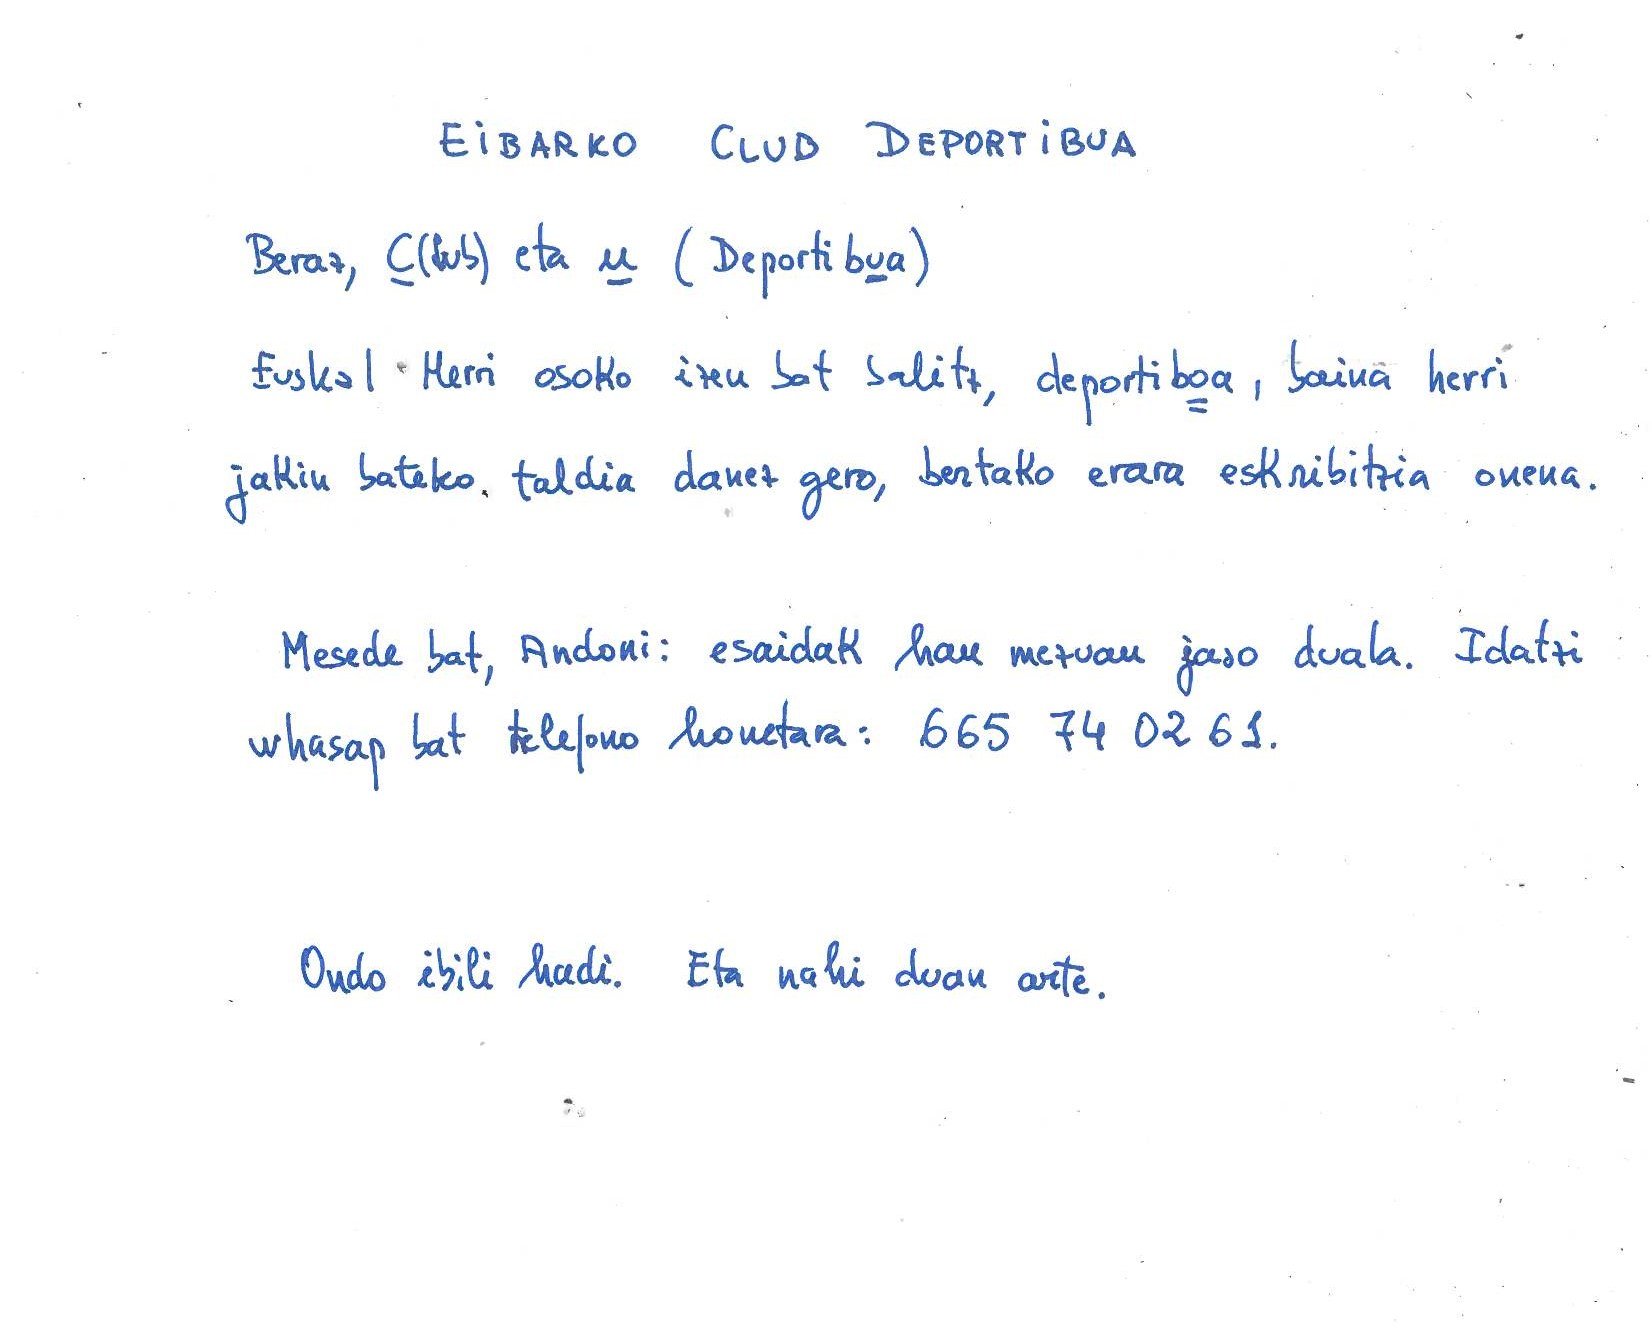 EIBARKO CLUD DEPORTIBUA
Beraz, C(lub) eta u (Deportibua)
Euskal Herri osoko izen bat balitz, deportiboa, baina herri
jakin bateko taldia danez gero, bertako erara eskribitzia onena.
Mesede bat, Andoni: esaidak hau mezuau jaso duala. Idatzi
whasap bat telefono honetara: 665 74 02 61.
Ondo ibili hadi. Eta nahi duan arte.